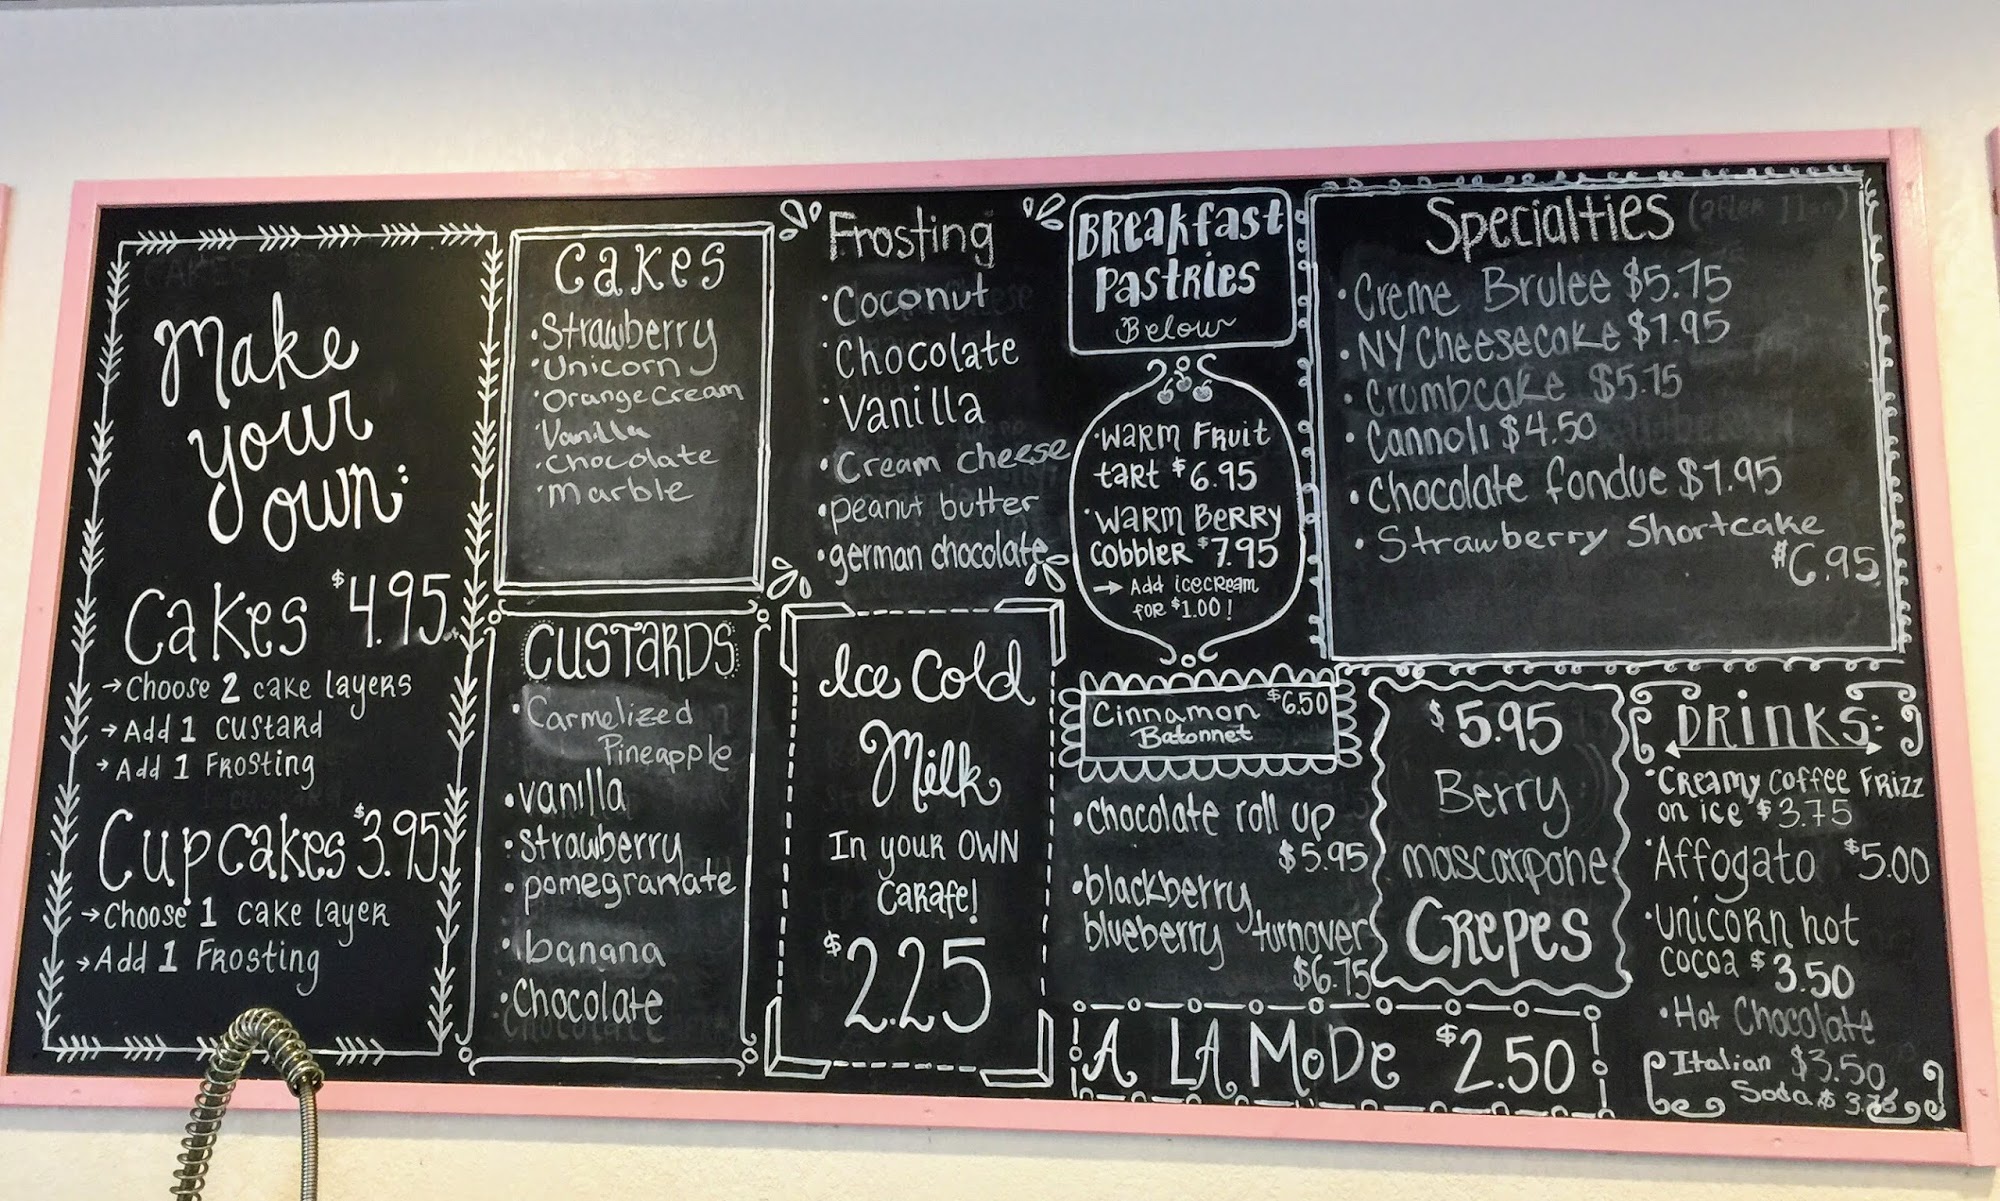 Make
your
own:
Cakes $4.95
→Choose 2 cake layers
→Add 1 Custard
→Add 1 Frosting
Cupcakes $3.95
→Choose 1 cake layer
→Add 1 Frosting
Cakes
•Strawberry
•Unicorn
•Orange Cream
•Vanilla
•Chocolate
•Marble
CUSTARDS
•Carmelized
Pineapple
•vanilla
•strawberry
•pomegranate
•banana
•Chocolate
Frosting
•Coconut
•Chocolate
•Vanilla
•Cream cheese
•peanut butter
•german chocolate
Ice Cold
Milk
In your OWN
Carafe!
$2.25
BREakfast
Pastries
Below
•Warm Fruit
tart $6.95
•Warm Berry
cobbler $7.95
→ Add icecream
for $1.00!
Cinnamon $6.50
Batonnet
•chocolate roll up
$5.95
•blackberry
blueberry turnover
$6.75
A LA MoDe $2.50
Specialties (after 11am)
•Creme Brulee $5.75
•NY Cheesecake $7.95
•Crumbcake $5.75
•Cannoli $4.50
•Chocolate fondue $7.95
•Strawberry Shortcake
$6.95
$5.95
Berry
mascarpone
Crepes
DRINKS:
•Creamy Coffee Frizz
on ice $3.75
•Affogato $5.00
•Unicorn hot
cocoa $3.50
•Hot Chocolate
$3.50
Italian
Soda $3.75